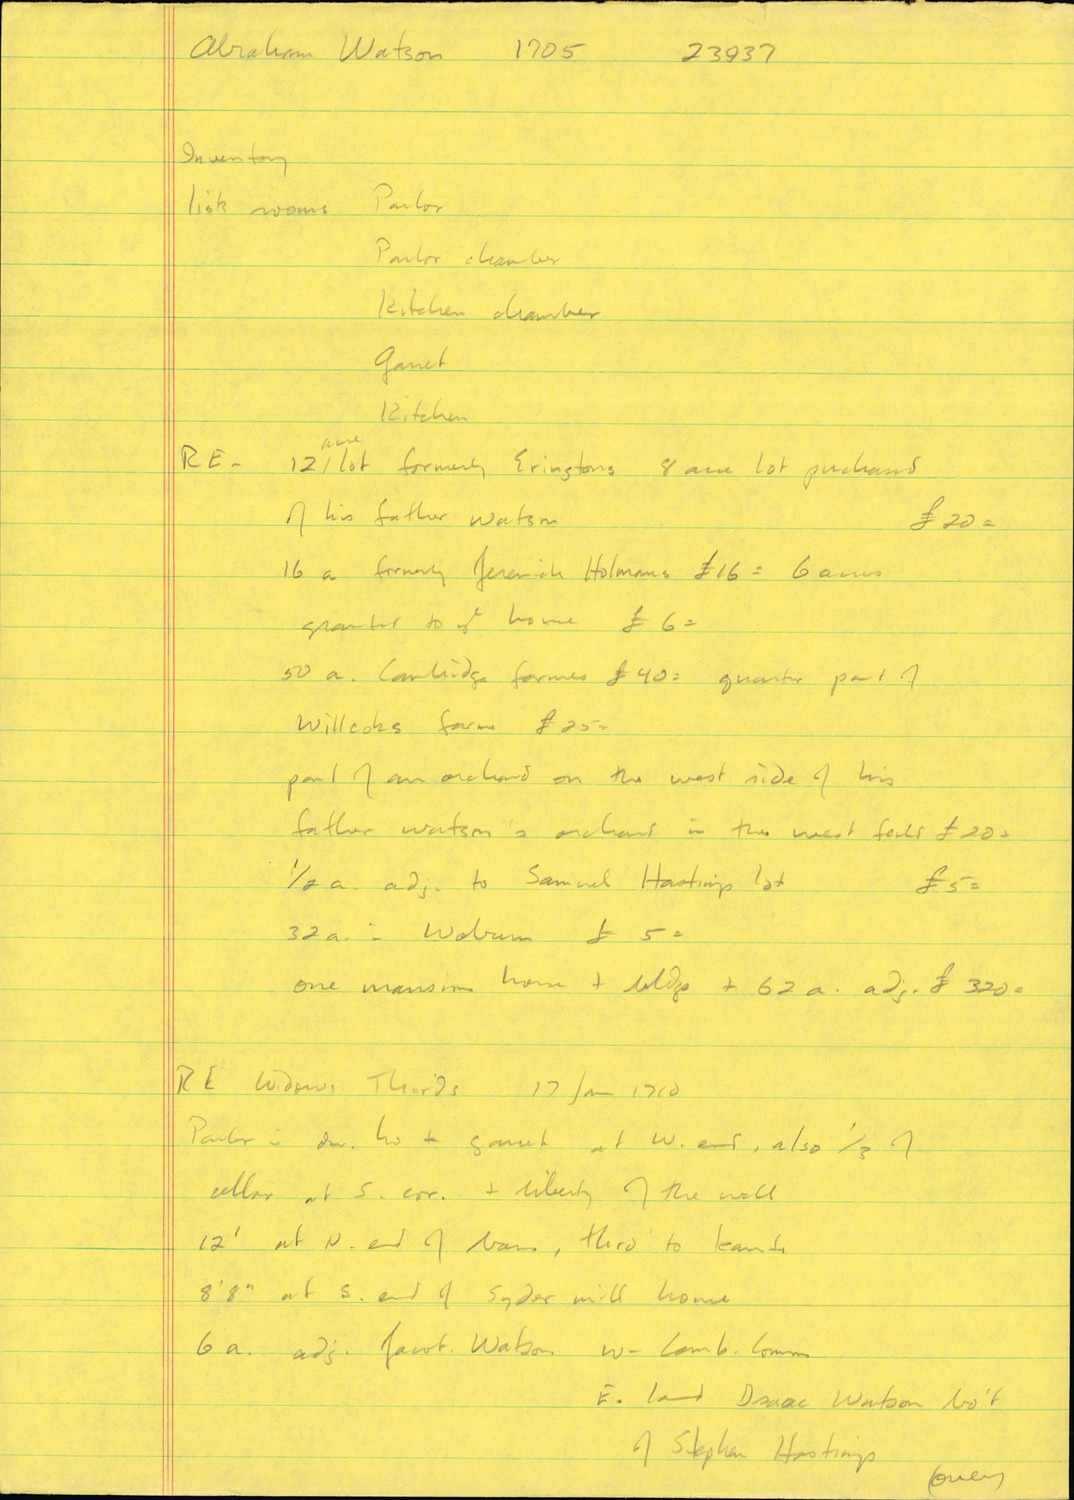 Abraham Watson 1705 23937
Inventory
list rooms Parlor
Parlor chamber
Kitchen chamber
Garret
Kitchen
RE- 12 acre lot formerly Eringtons 8 acre lot purchased
of his father Watson £20=
16 a formerly Jeremiah Holmans £16= 6 acres
granted to sd house £6=
50 a. Cambridge farmes £40= quarter part of
Willcoks farme £25=
part of an orchard on the west side of his
father watson's orchard in the west feild £20=
1/2 a. adj. to Samuel Hastings lot £5=
32 a. in Woburn £5=
one mansion house + bldgs + 62 a. adj. £320=
RE Widows Thirds 17 Jan 1710
Parlor in dw. ho + garret at W. end, also 1/3 of
cellar at S. cor. + liberty of the well
12' at N. end of barn, thro' to leanto
8'8" at S. end of Syder mill house
6 a. adj. Jacob. Watson W- Camb. Common
E. land Isaac Watson bo't
of Stephen Hastings
(over)